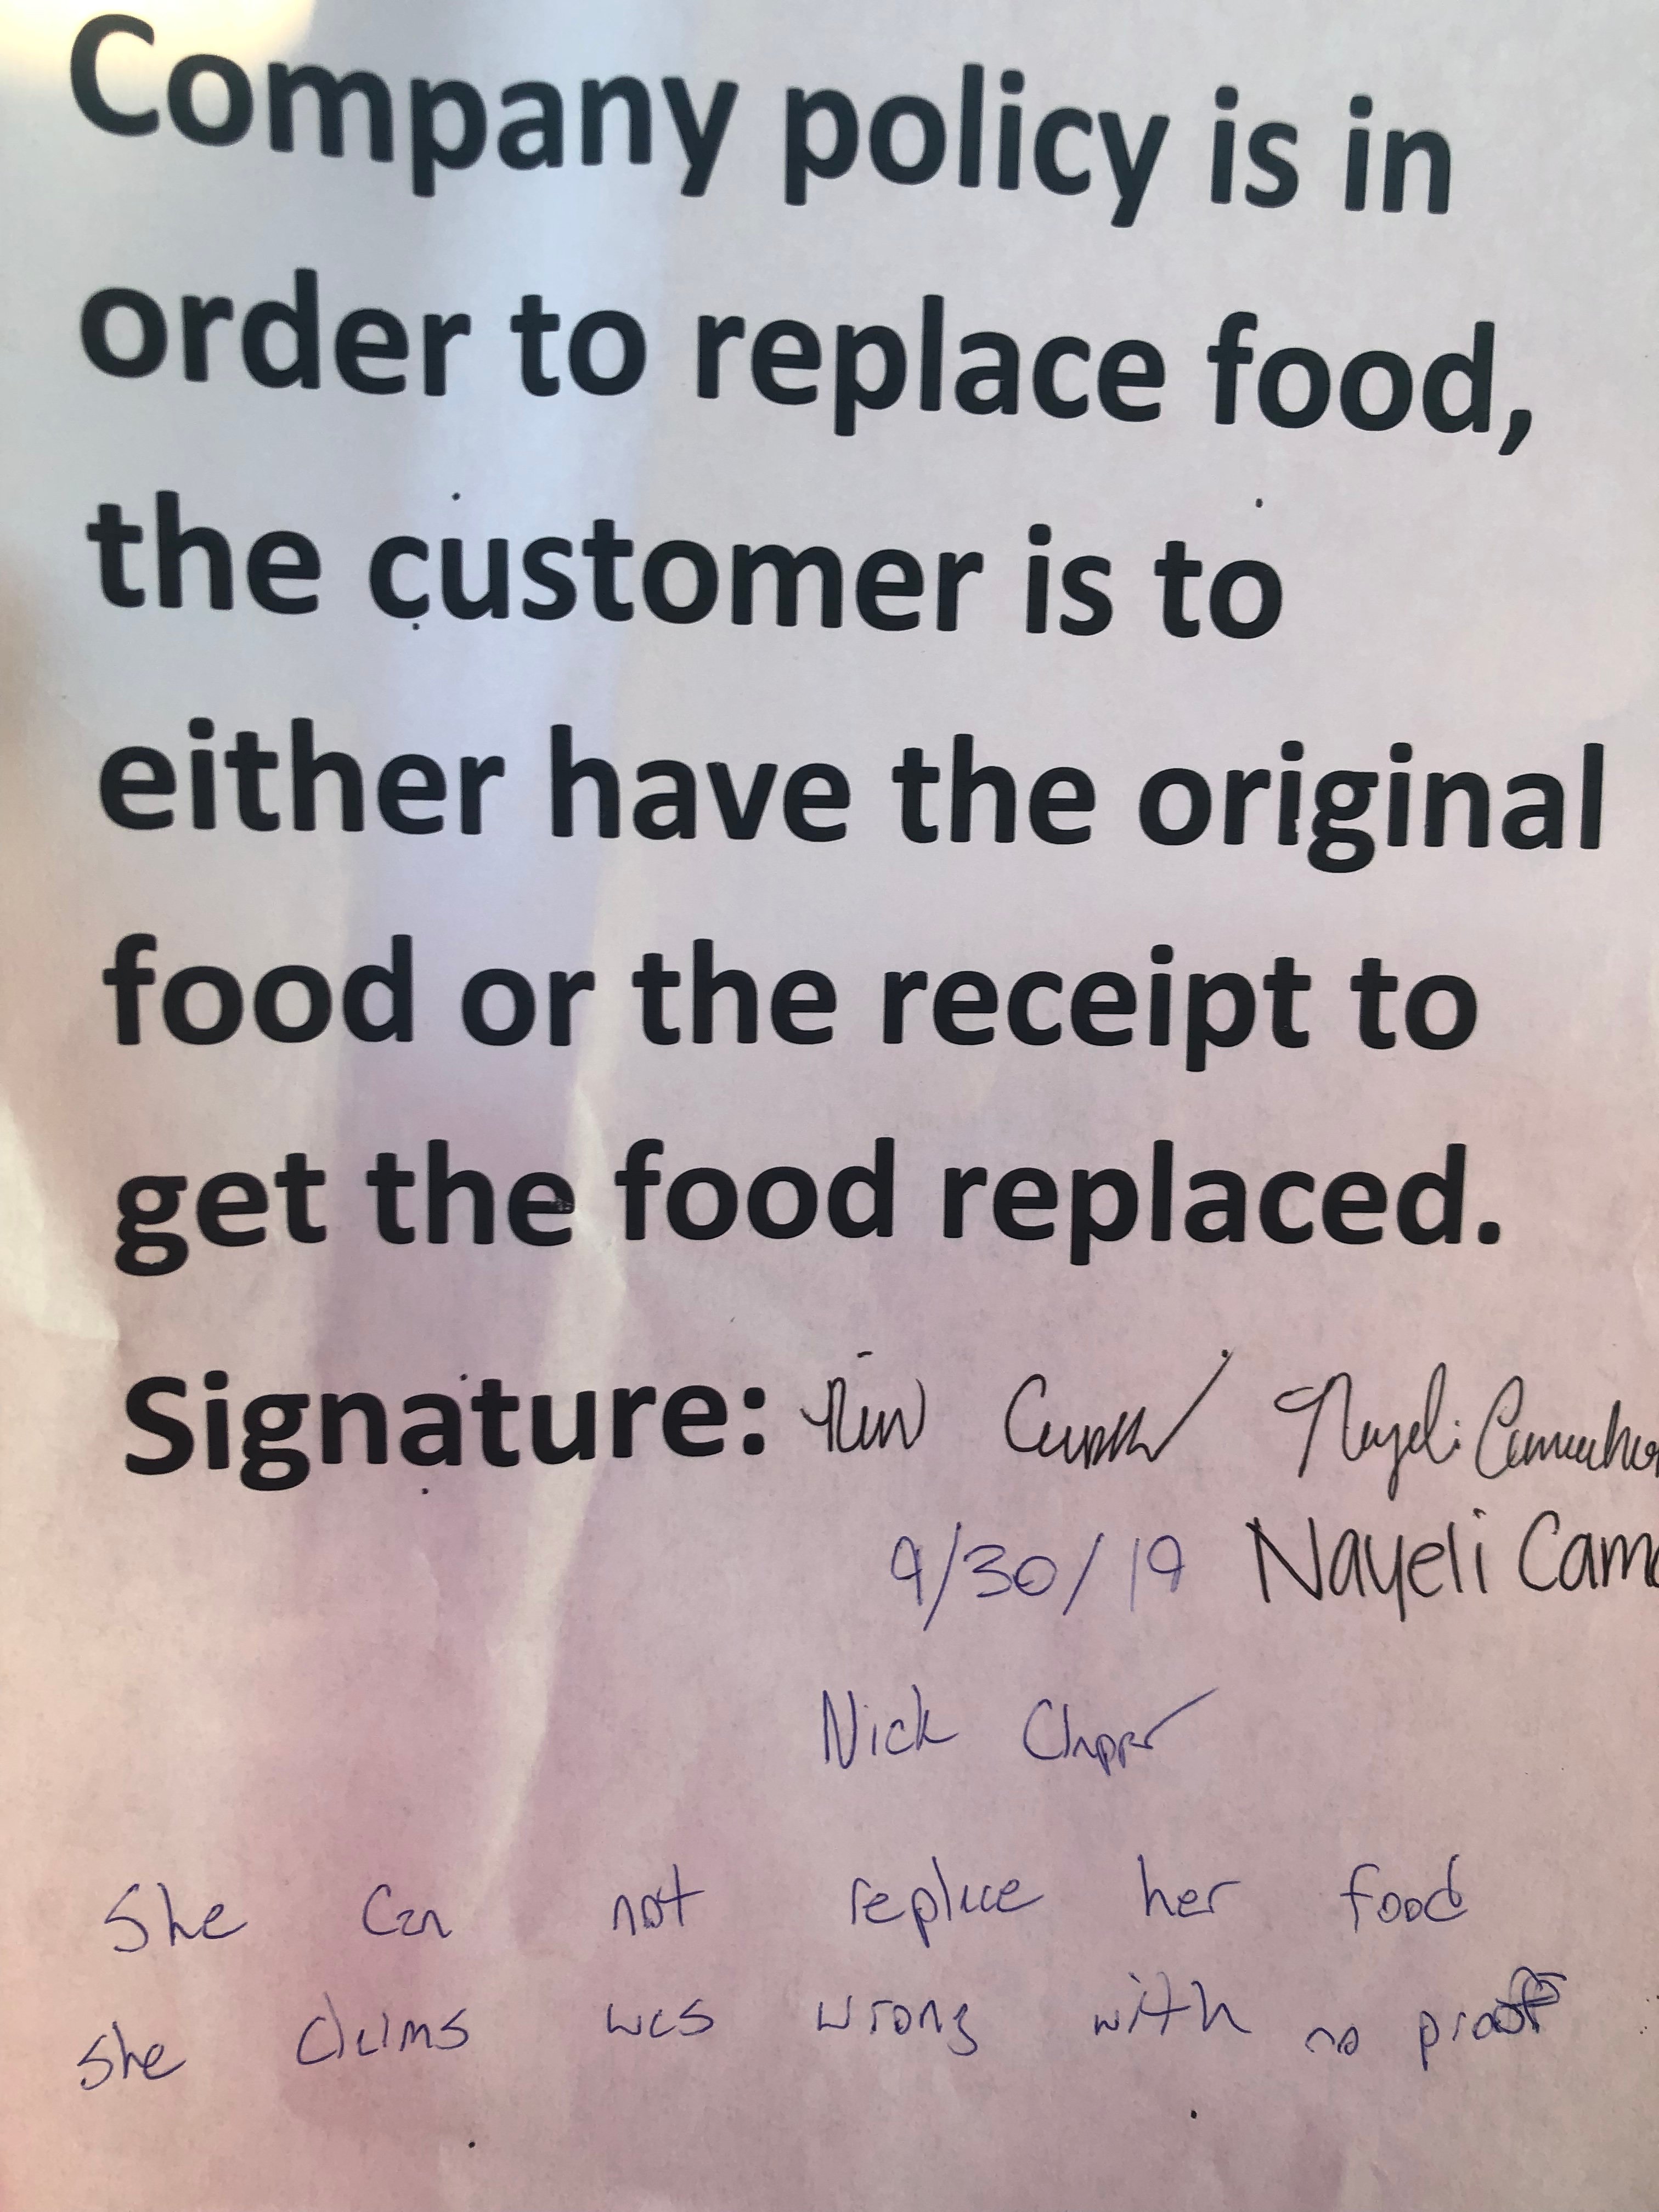 Company policy is in
order to replace food,
the customer is to
either have the original
food or the receipt to
get the food replaced.
Signature: Nayeli
9/30/19 Nayeli Cam
Nick
She can not replace her food
she claims was wrong with no proof